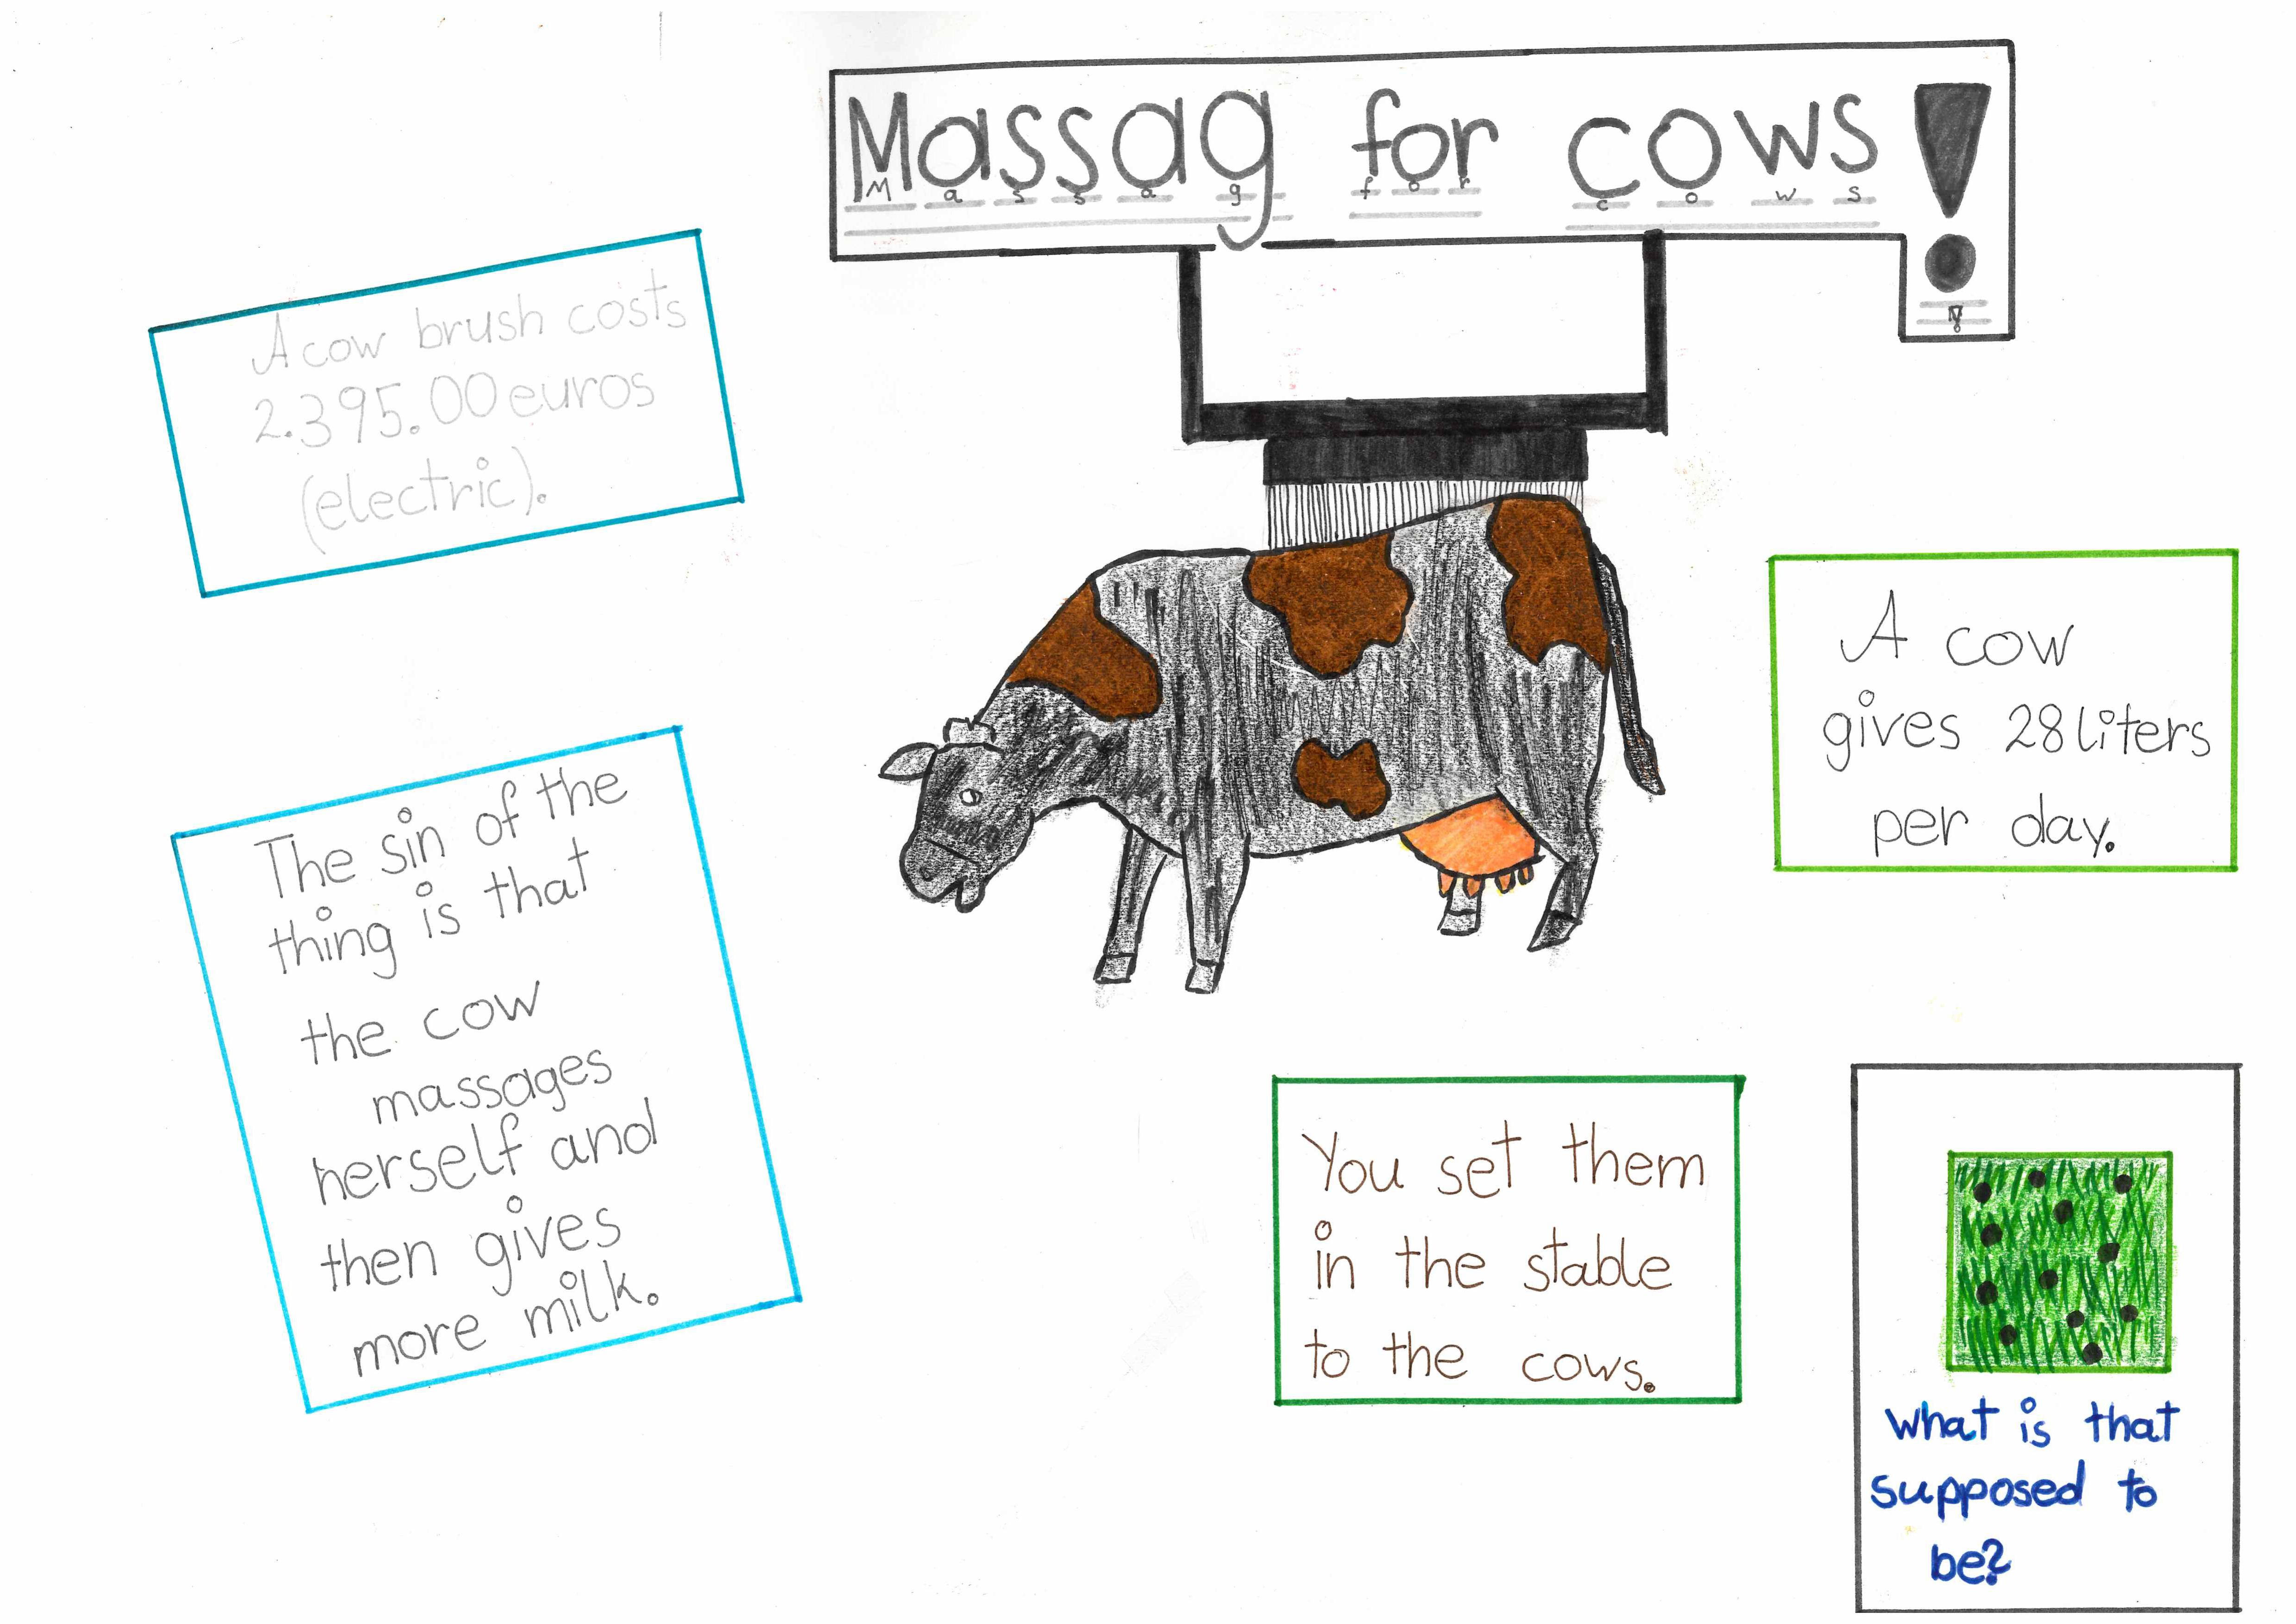 Massag for cows!
M a s s a g f o r c o w s
!
A cow brush costs
2.395.00 euros
(electric).
The sin of the
thing is that
the cow
massages
herself and
then gives
more milk.
A cow
gives 28 liters
per day.
You set them
in the stable
to the cows.
What is that
supposed to
be?